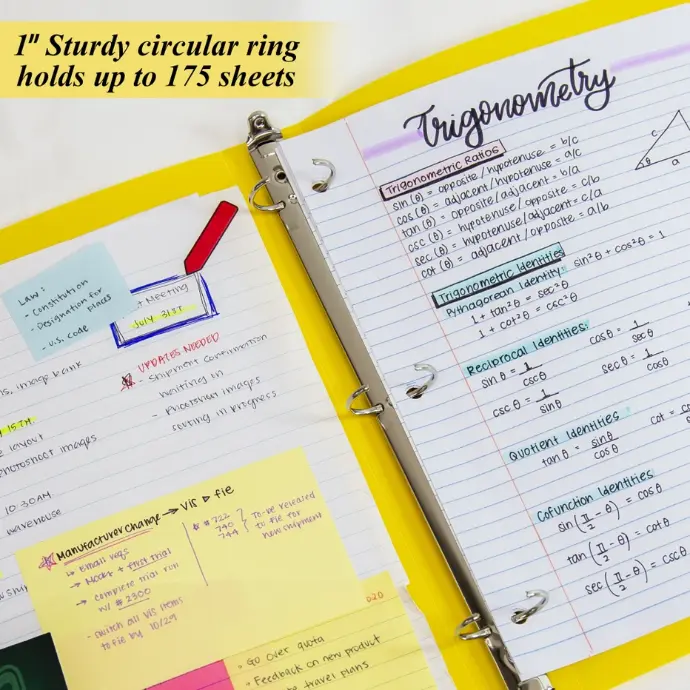 1" Sturdy circular ring
holds up to 175 sheets
Trigonometry
Trigonometric Ratios
sin (θ) = opposite / hypotenuse = b/c
cos (θ) = adjacent / hypotenuse = a/c
tan (θ) = opposite / adjacent = b/a
csc (θ) = hypotenuse / opposite = c/b
sec (θ) = hypotenuse / adjacent = c/a
cot (θ) = adjacent / opposite = a/b
c
θ
a
Trigonometric Identities
Pythagorean Identity: sin²θ + cos²θ = 1
1 + tan²θ = sec²θ
1 + cot²θ = csc²θ
Reciprocal Identities:
sin θ = 1/cscθ cosθ = 1/secθ
cscθ = 1/sinθ secθ = 1/cosθ
Quotient Identities
tanθ = sinθ/cosθ cot =
Cofunction Identities
sin(π/2 - θ) = cosθ
tan(π/2 - θ) = cotθ
sec(π/2 - θ) = cscθ
Law:
- Constitution
- Designation for
Places
- U.S. code
Meeting
July 31st
UPDATES NEEDED
- Shipment confirmation
waiting on
- Photoshoot images
still in progress
image bank
15TH
layout
Photoshoot images
10:30AM
warehouse
Manufacturer change → VIS & FIE
↳ Email Migs
→ Mocks + first trial
→ Complete trial run
w/ # 2300
- Switch all VIS items
to FIE by 10/29
# 722
740
744
To be released
to FIE for
new shipment
020
• Go over quota
• Feedback on new product
travel plans